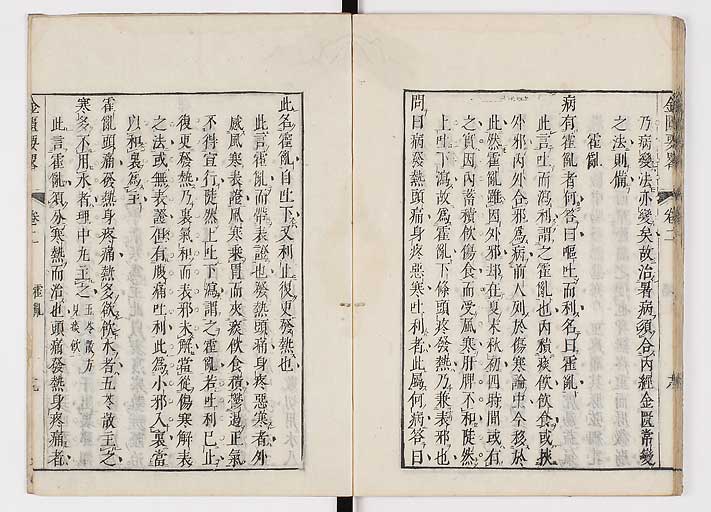 金匱要畧 卷二
乃病變法亦變矣故治暑病須合內經金匱常變
之法則備
霍亂
病有霍亂者何答曰嘔吐而利名曰霍亂
此言吐而瀉利謂之霍亂也內積痰飲飲食或挾
外邪內外合邪為病前人列於傷寒論中今移於
此然霍亂雖因外邪却在夏末秋初四時間或有
之實因內蓄積飲傷食而受風寒肝脾不和徒然
上吐下瀉故為霍亂下條頭疼發熱乃兼表邪也
問曰病發熱頭痛身疼惡寒吐利者此屬何病答曰
此名霍亂自吐下又利止復更發熱也
此言霍亂而帶表證也發熱頭痛身疼惡寒者外
感風寒表證風寒乘胃而夾痰飲食積鬱遏正氣
不得宣行徒然上吐下瀉謂之霍亂若吐利已止
復更發熱乃裏氣和而表邪未解當從傷寒解表
之法或無表證但有腹痛吐利此為小邪入裏當
以和裏為主
霍亂頭痛發熱身疼痛熱多欲飲水者五苓散主之
寒多不用水者理中丸主之 五苓散方見痰飲
此言霍亂須分寒熱而治也頭痛發熱身疼痛者
金匱要畧 卷二 霍亂